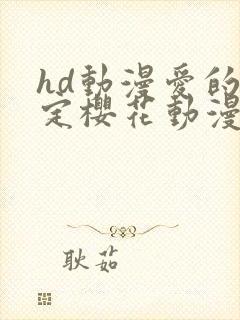 hd動漫愛的
定櫻花動漫
耿茹